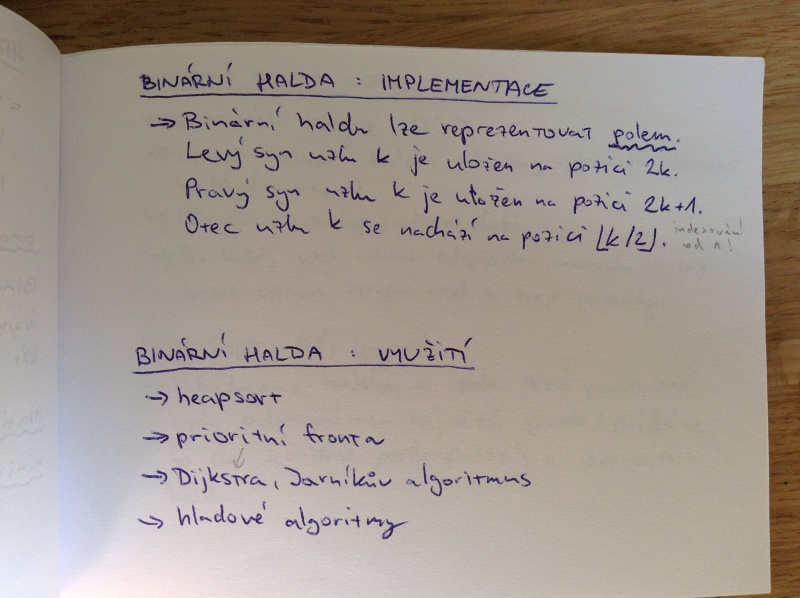 BINÁRNÍ HALDA : IMPLEMENTACE
→ Binární haldu lze reprezentovat polem.
Levý syn uzlu k je uložen na pozici 2k.
Pravý syn uzlu k je uložen na pozici 2k+1.
Otec uzlu k se nachází na pozici ⌊k/2⌋.
indexování
od 1!
BINÁRNÍ HALDA : VYUŽITÍ
→ heapsort
→ prioritní fronta
→ Dijkstra, Jarníkův algoritmus
→ hladové algoritmy